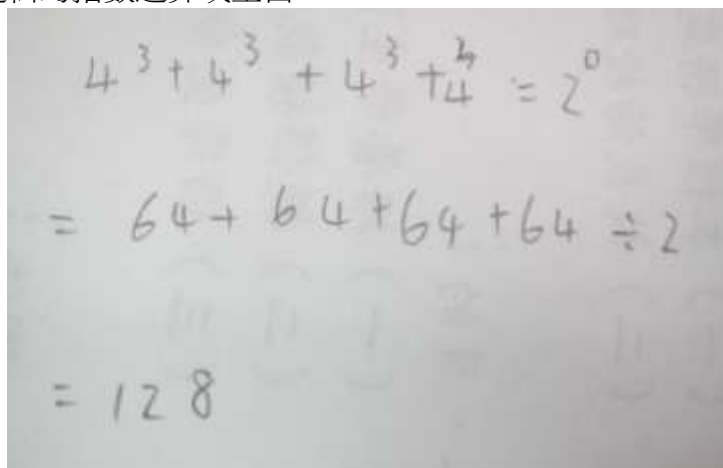 4³ + 4³ + 4³ + 4³ = 2⁰
= 64 + 64 + 64 + 64 ÷ 2
= 128